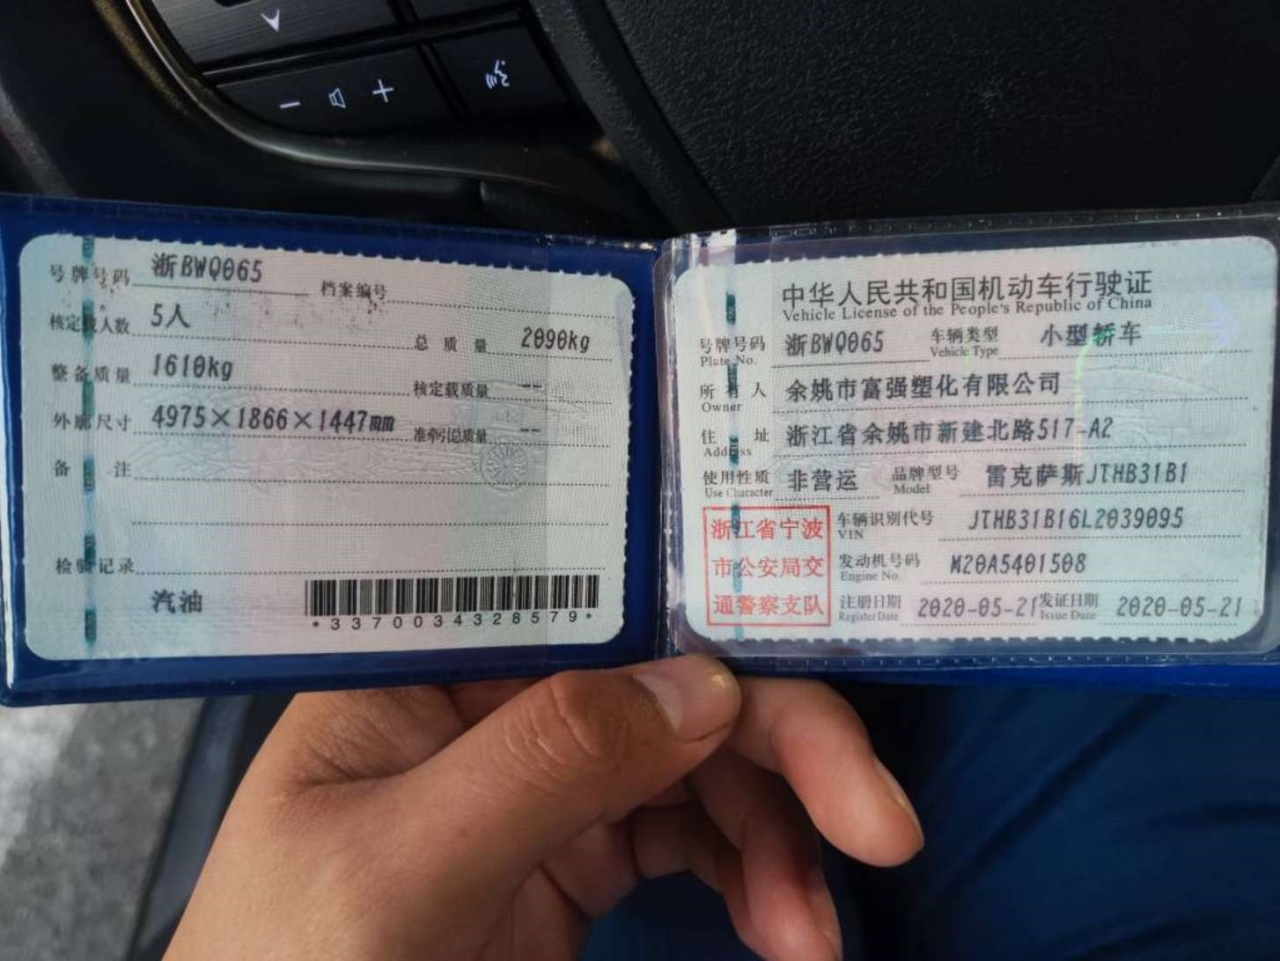 号牌号码 浙BWQ065 档案编号
核定载人数 5人 总质量 2090kg
整备质量 1610kg 核定载质量 --
外廓尺寸 4975×1866×1447mm 准牵引总质量 --
备注
检验记录
汽油
*3370034328579*
中华人民共和国机动车行驶证
Vehicle License of the People's Republic of China
号牌号码 浙BWQ065 车辆类型 小型轿车
Plate No. Vehicle Type
所有人 余姚市富强塑化有限公司
Owner
住址 浙江省余姚市新建北路517-A2
Address
使用性质 非营运 品牌型号 雷克萨斯JTHB31B1
Use Character Model
浙江省宁波
市公安局交
通警察支队
车辆识别代号 JTHB31B16L2039095
VIN
发动机号码 M20A5401508
Engine No.
注册日期 2020-05-21 发证日期 2020-05-21
Register Date Issue Date